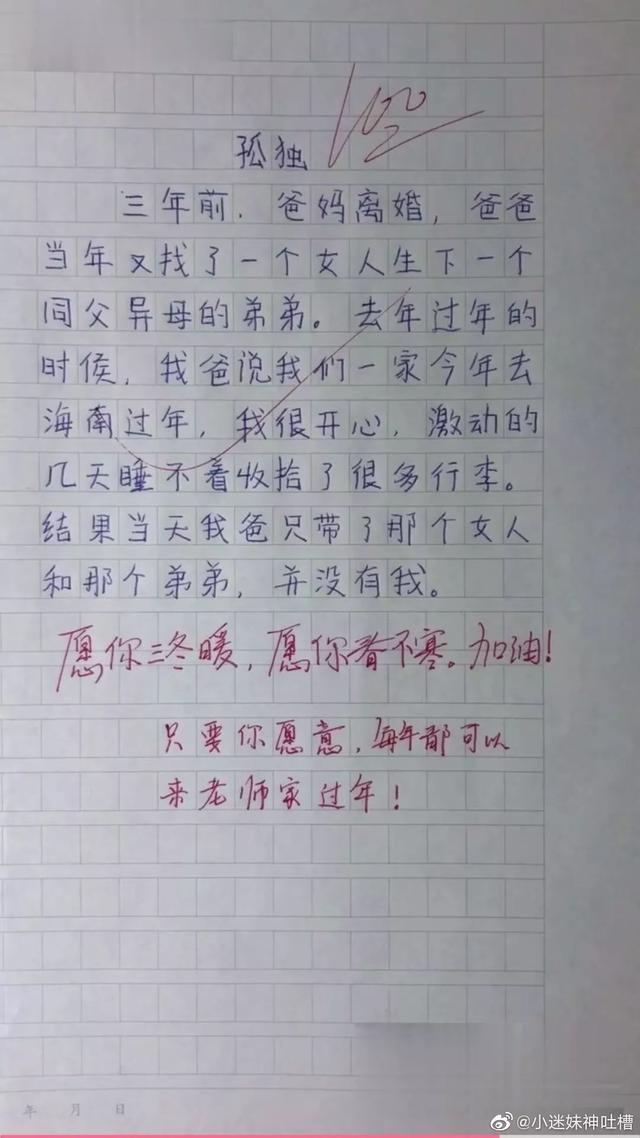 孤独
100
三年前，爸妈离婚，爸爸
当年又找了一个女人生下一个
同父异母的弟弟。去年过年的
时侯，我爸说我们一家今年去
海南过年，我很开心，激动的
几天睡不着收拾了很多行李。
结果当天我爸只带了那个女人
和那个弟弟，并没有我。
愿你三冬暖，愿你春不寒。加油！
只要你愿意，每年都可以
来老师家过年！
年 月 日
@小迷妹神吐槽